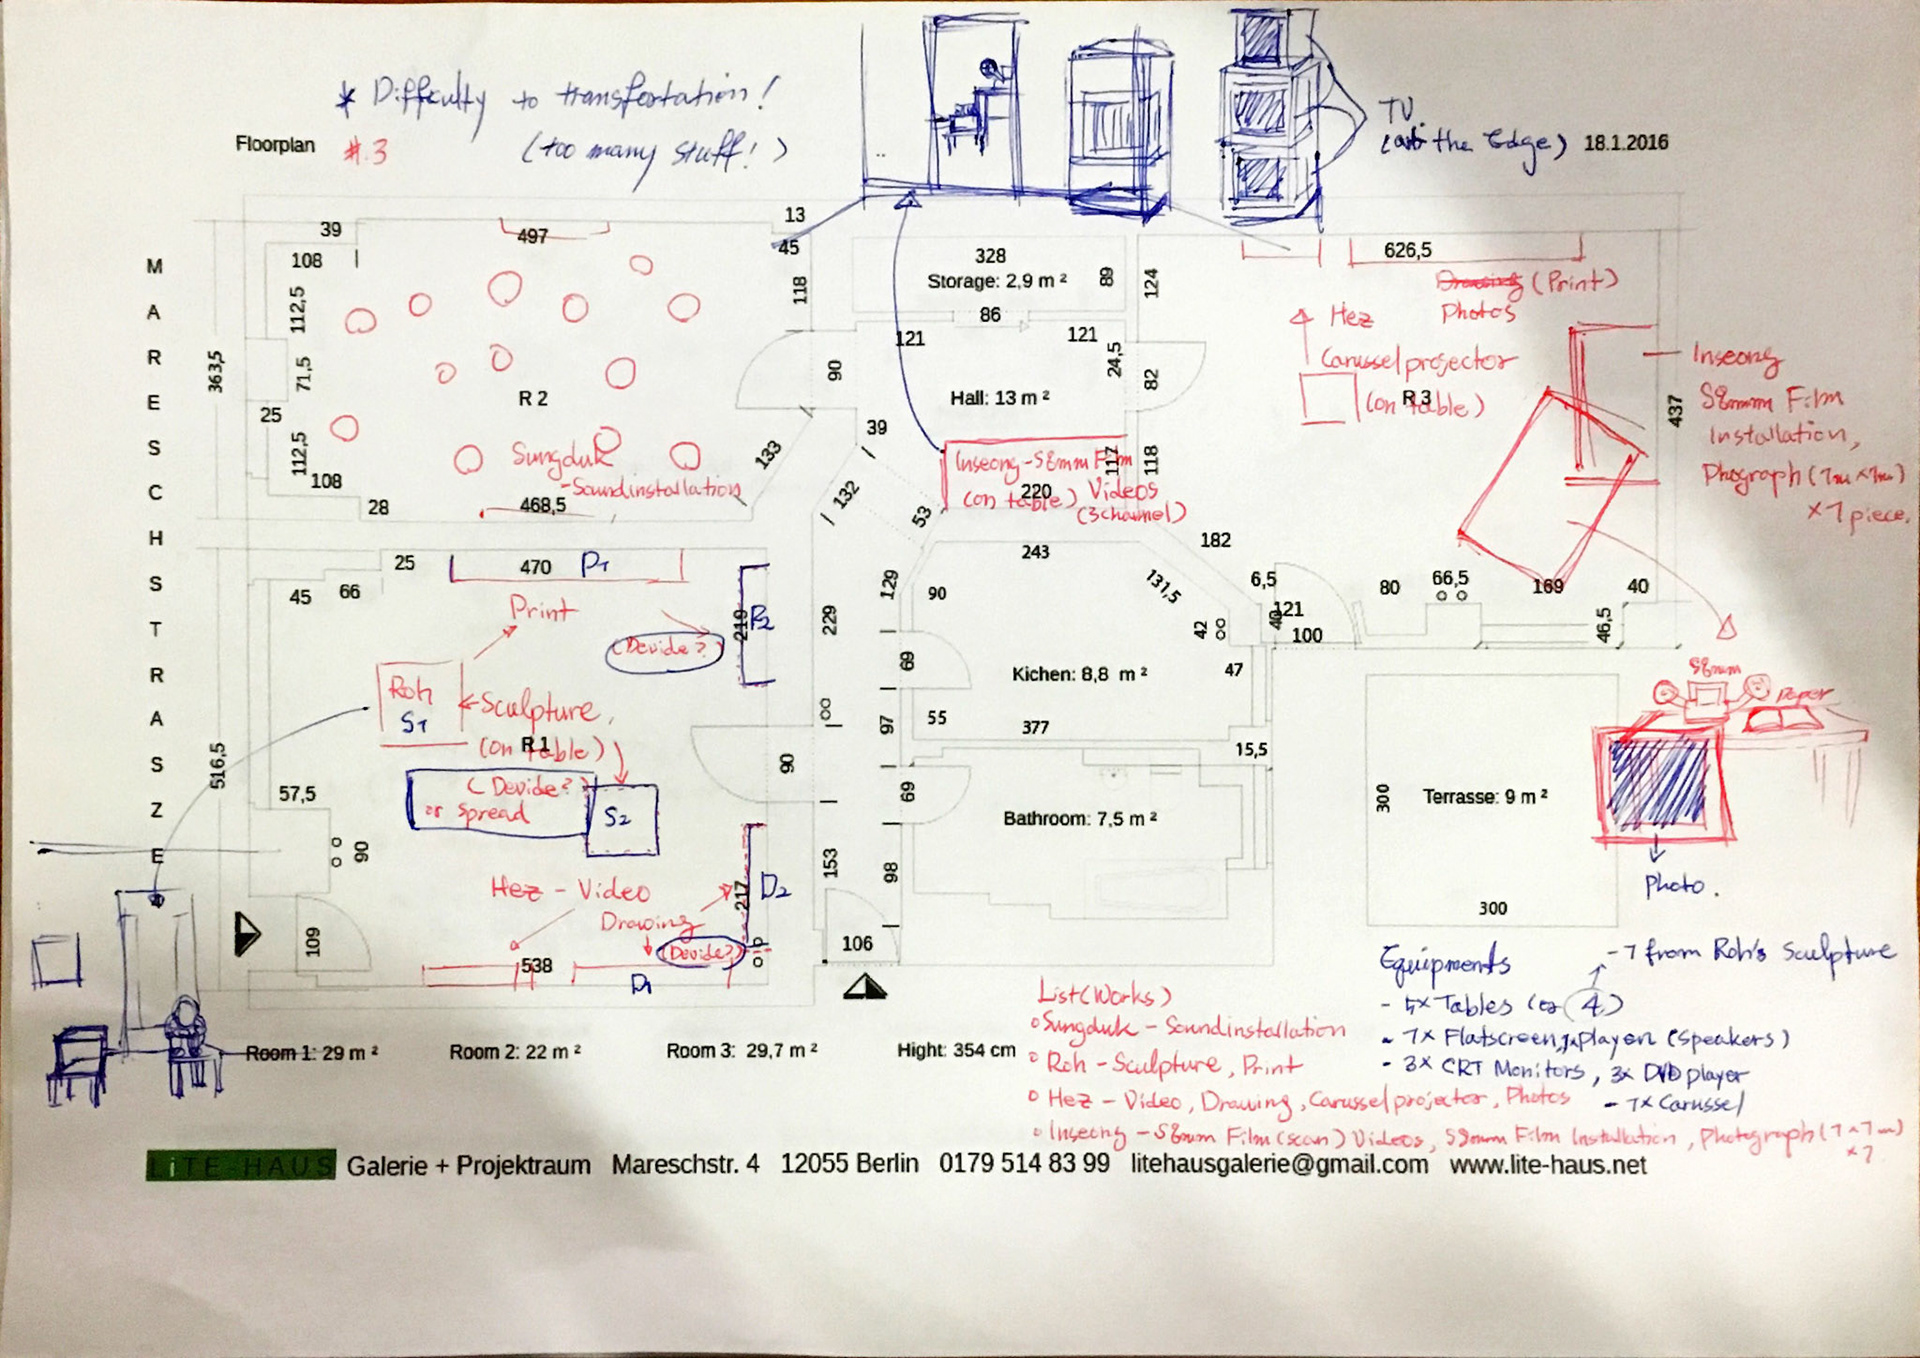 * Difficulty to transfortation!
Floorplan #.3 (too many stuff!)
TV.
(at the Edge) 18.1.2016
MARESCHSTRASZE
39
497
13
45
108
112,5
118
363,5
71,5
25
R 2
90
112,5
108
Sungduk
-Soundinstallation
133
28
468,5
328
Storage: 2,9 m ²
89
124
86
121
121
24,5
82
Hall: 13 m ²
39
132
53
Inseong-S8mm Film
(on table) Videos
(3channel)
117
118
220
626,5
Drawing (Print)
Photos
Hez
Carussel projector
(on table)
R 3
437
Inseong
S8mm Film
Installation,
Phograph (1m x 1m)
x 1 piece.
25
470
P1
45
66
Print
219
P2
(Devide?)
229
Roh
S1
Sculpture,
(on table)
R 1
516,5
(Devide?)
or Spread
S2
57,5
90
90
Hez - Video
217
D2
Drawing
(Devide?)
109
538
D1
153
106
243
182
129
90
131,5
6,5
121
40
100
80
66,5
169
40
46,5
42
69
Kichen: 8,8 m ²
47
97
55
377
15,5
69
Bathroom: 7,5 m ²
98
300
Terrasse: 9 m ²
300
S8mm
Paper
Photo.
Room 1: 29 m ²
Room 2: 22 m ²
Room 3: 29,7 m ²
Hight: 354 cm
List(Works)
Sungduk - Soundinstallation
Roh - Sculpture, Print
Hez - Video, Drawing, Carussel projector, Photos
Inseong - S8mm Film (scan) Videos, S8mm Film Installation, Photograph (1 x 1 m)
x 1
Equipments
- 1 from Roh's Sculpture
- 5x Tables (or 4)
- 1x Flatscreen, 1x player (Speakers)
- 3x CRT Monitors, 3x DVD player
- 1x Carussel
LiTE-HAUS Galerie + Projektraum Mareschstr. 4 12055 Berlin 0179 514 83 99 litehausgalerie@gmail.com www.lite-haus.net